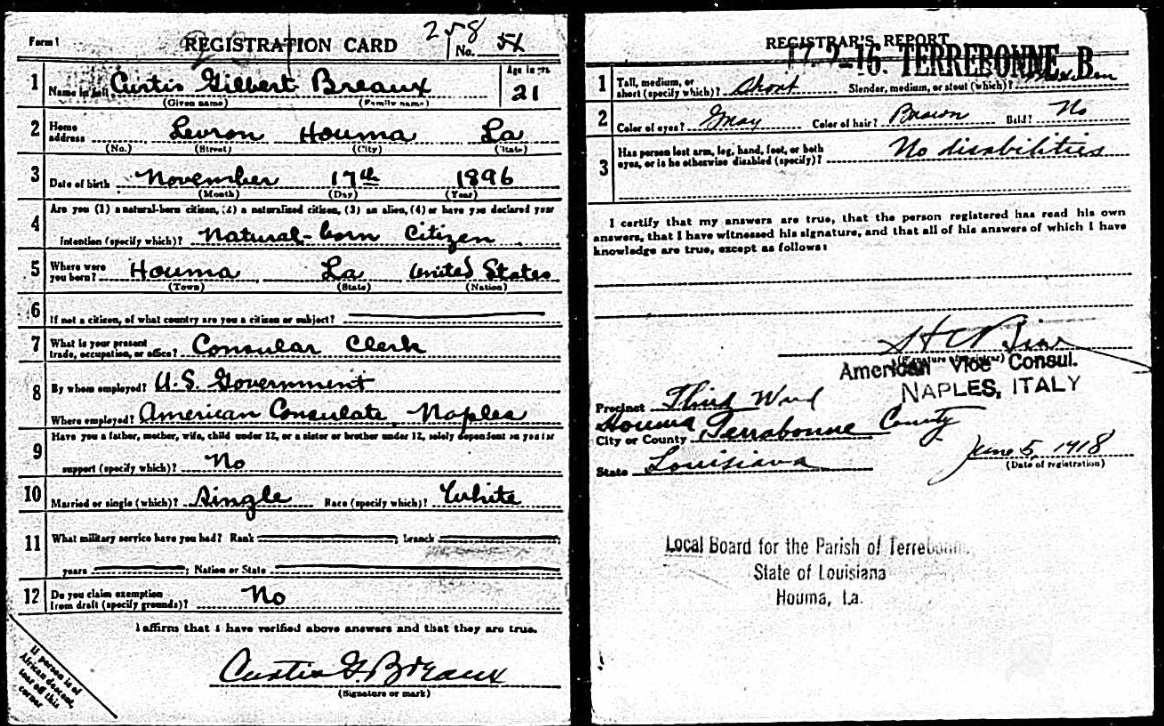 Form 1 REGISTRATION CARD 258 No. 54
1 Name in full Curtis Gilbert Breaux Age in yrs. 21
(Given name) (Family name)
2 Home address Levron Houma La
(No.) (Street) (City) (State)
3 Date of birth November 17th 1896
(Month) (Day) (Year)
4 Are you (1) a natural-born citizen, (2) a naturalized citizen, (3) an alien, (4) or have you declared your
intention (specify which)? Natural-born Citizen
5 Where were you born? Houma La United States
(Town) (State) (Nation)
6 If not a citizen, of what country are you a citizen or subject?
7 What is your present trade, occupation, or office? Consular Clerk
8 By whom employed? U.S. Government
Where employed? American Consulate Naples
9 Have you a father, mother, wife, child under 12, or a sister or brother under 12, solely dependent on you for
support (specify which)? No
10 Married or single (which)? Single Race (specify which)? White
11 What military service have you had? Rank ; branch
years ; Nation or State
12 Do you claim exemption from draft (specify grounds)? No
I affirm that I have verified above answers and that they are true.
Curtis G Breaux
(Signature or mark)
If person is of
African descent,
tear off this
corner
REGISTRAR'S REPORT
17-2-16. TERREBONNE, B
1 Tall, medium, or short (specify which)? Short Slender, medium, or stout (which)?
2 Color of eyes? Gray Color of hair? Brown Bald? No
3 Has person lost arm, leg, hand, foot, or both eyes, or is he otherwise disabled (specify)? No disabilities
I certify that my answers are true, that the person registered has read his own
answers, that I have witnessed his signature, and that all of his answers of which I have
knowledge are true, except as follows:
(Signature of registrar)
American Vice Consul.
NAPLES, ITALY
Precinct Third Ward
City or County Houma Terrebonne County
State Louisiana June 5, 1918
(Date of registration)
Local Board for the Parish of Terrebonne,
State of Louisiana
Houma, La.